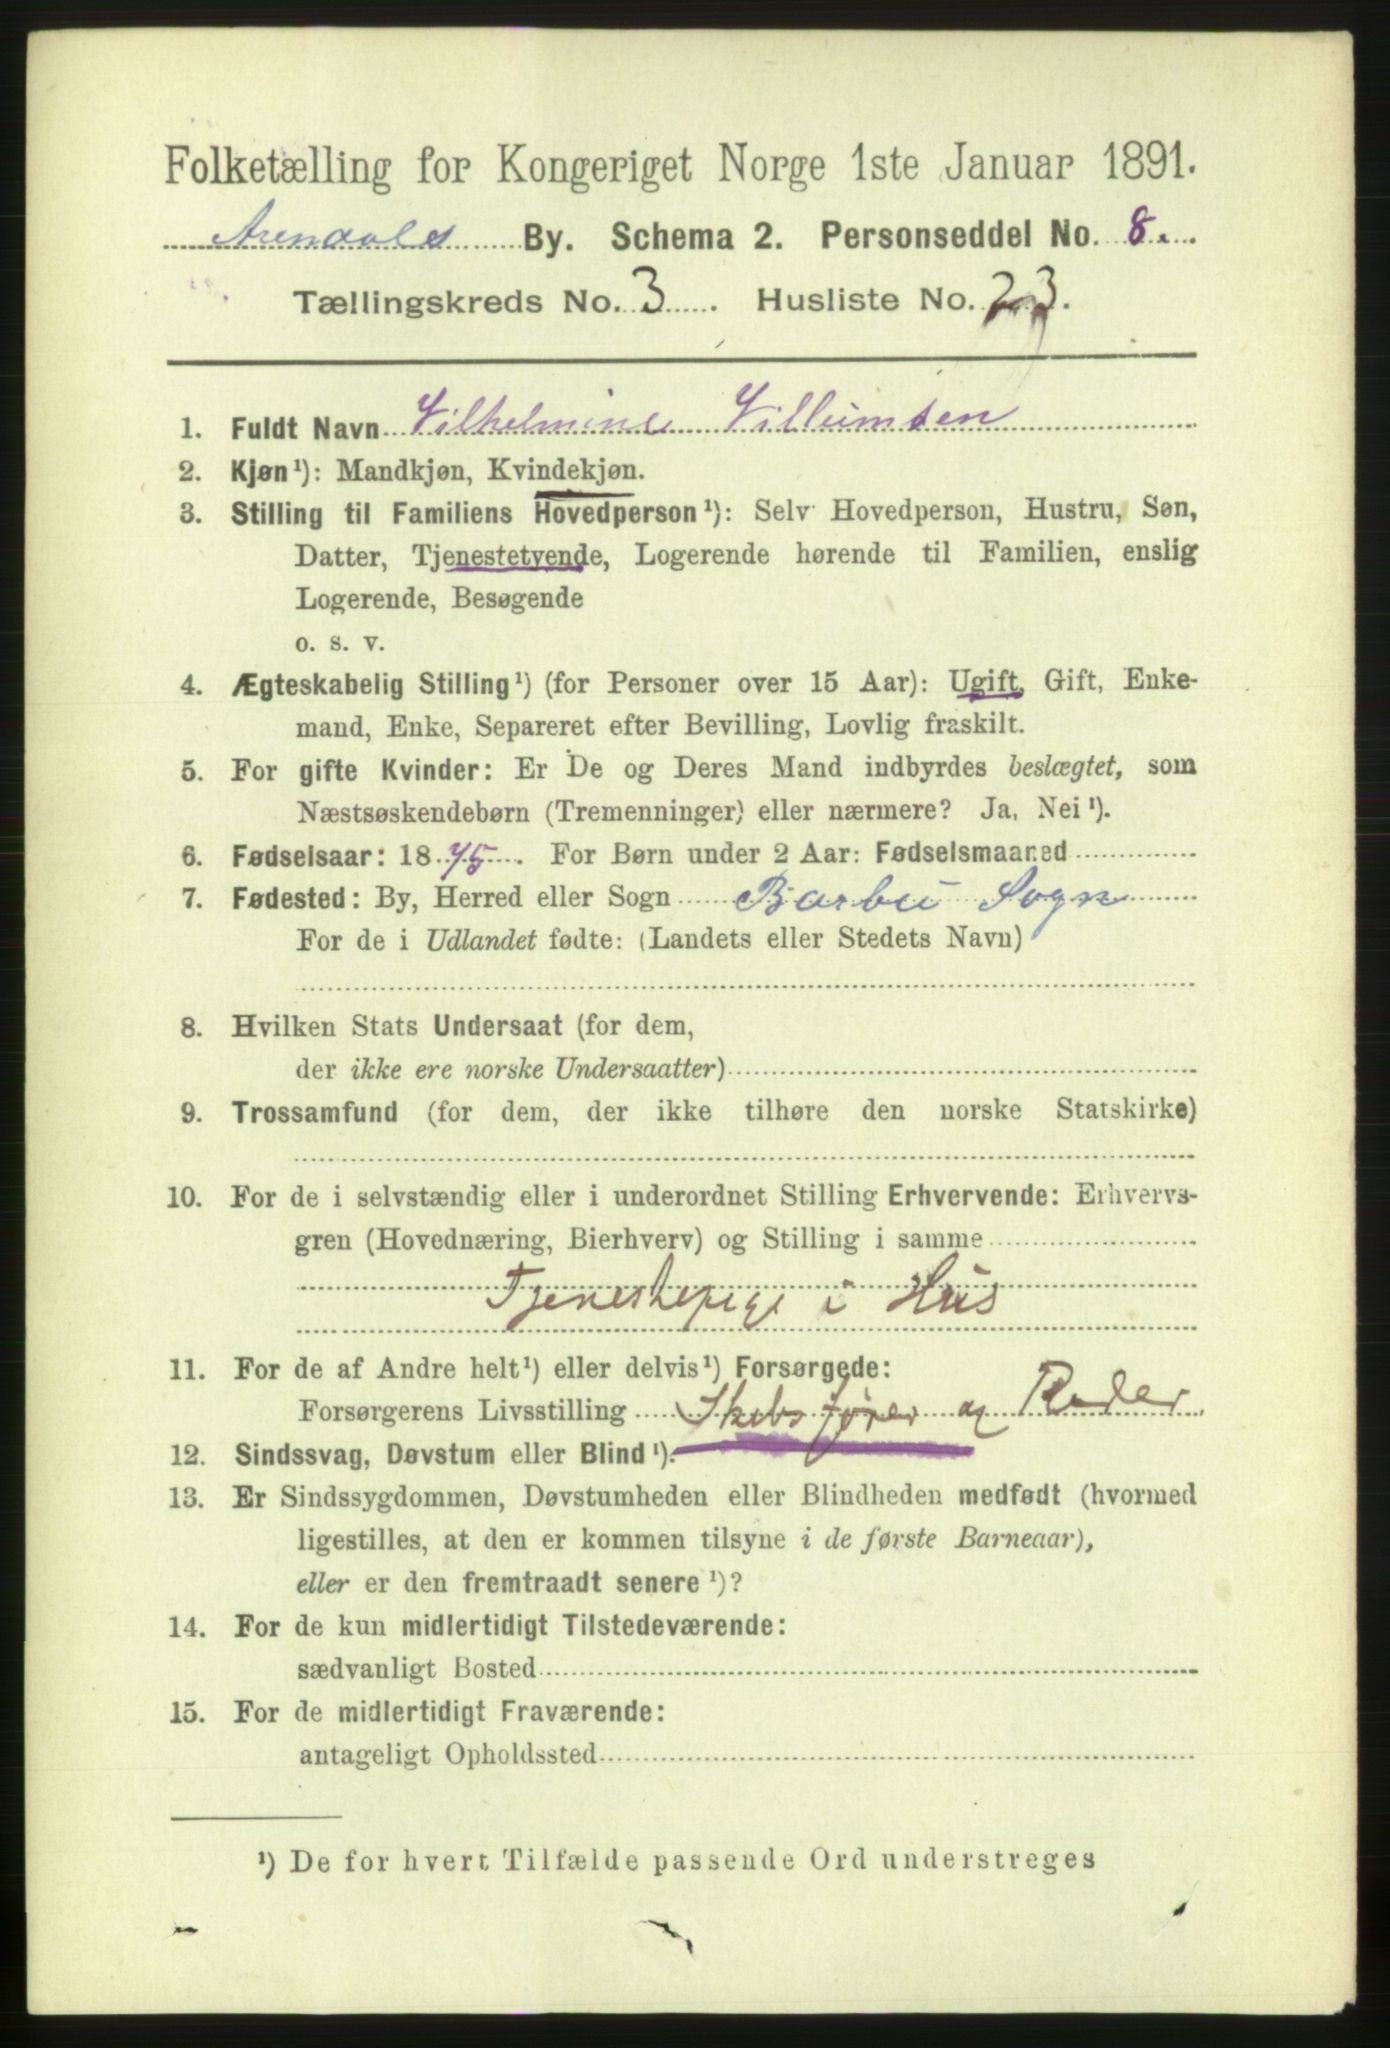 Folketælling for Kongeriget Norge 1ste Januar 1891.
Arendals By. Schema 2. Personseddel No. 8.
Tællingskreds No. 3. Husliste No. 23.
1. Fuldt Navn Vilhelmine Villumsen
2. Kjøn¹): Mandkjøn, Kvindekjøn.
3. Stilling til Familiens Hovedperson¹): Selv Hovedperson, Hustru, Søn,
Datter, Tjenestetyende, Logerende hørende til Familien, enslig
Logerende, Besøgende
o. s. v.
4. Ægteskabelig Stilling¹) (for Personer over 15 Aar): Ugift, Gift, Enke-
mand, Enke, Separeret efter Bevilling, Lovlig fraskilt.
5. For gifte Kvinder: Er De og Deres Mand indbyrdes beslægtet, som
Næstsøskendebørn (Tremenninger) eller nærmere? Ja, Nei¹).
6. Fødselsaar: 1875. For Børn under 2 Aar: Fødselsmaaned
7. Fødested: By, Herred eller Sogn Barbu Sogn
For de i Udlandet fødte: (Landets eller Stedets Navn)
8. Hvilken Stats Undersaat (for dem,
der ikke ere norske Undersaatter)
9. Trossamfund (for dem, der ikke tilhøre den norske Statskirke)
10. For de i selvstændig eller i underordnet Stilling Erhvervende: Erhvervs-
gren (Hovednæring, Bierhverv) og Stilling i samme
Tjenestepige i Hus
11. For de af Andre helt¹) eller delvis¹) Forsørgede:
Forsørgerens Livsstilling Skibsfører og Reder
12. Sindssvag, Døvstum eller Blind¹).
13. Er Sindssygdommen, Døvstumheden eller Blindheden medfødt (hvormed
ligestilles, at den er kommen tilsyne i de første Barneaar),
eller er den fremtraadt senere¹)?
14. For de kun midlertidigt Tilstedeværende:
sædvanligt Bosted
15. For de midlertidigt Fraværende:
antageligt Opholdssted
¹) De for hvert Tilfælde passende Ord understreges